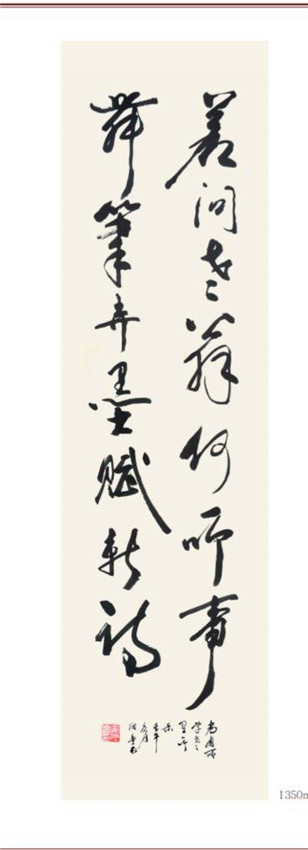 若问老翁何所事
舞筆弄墨赋新诗
1350m